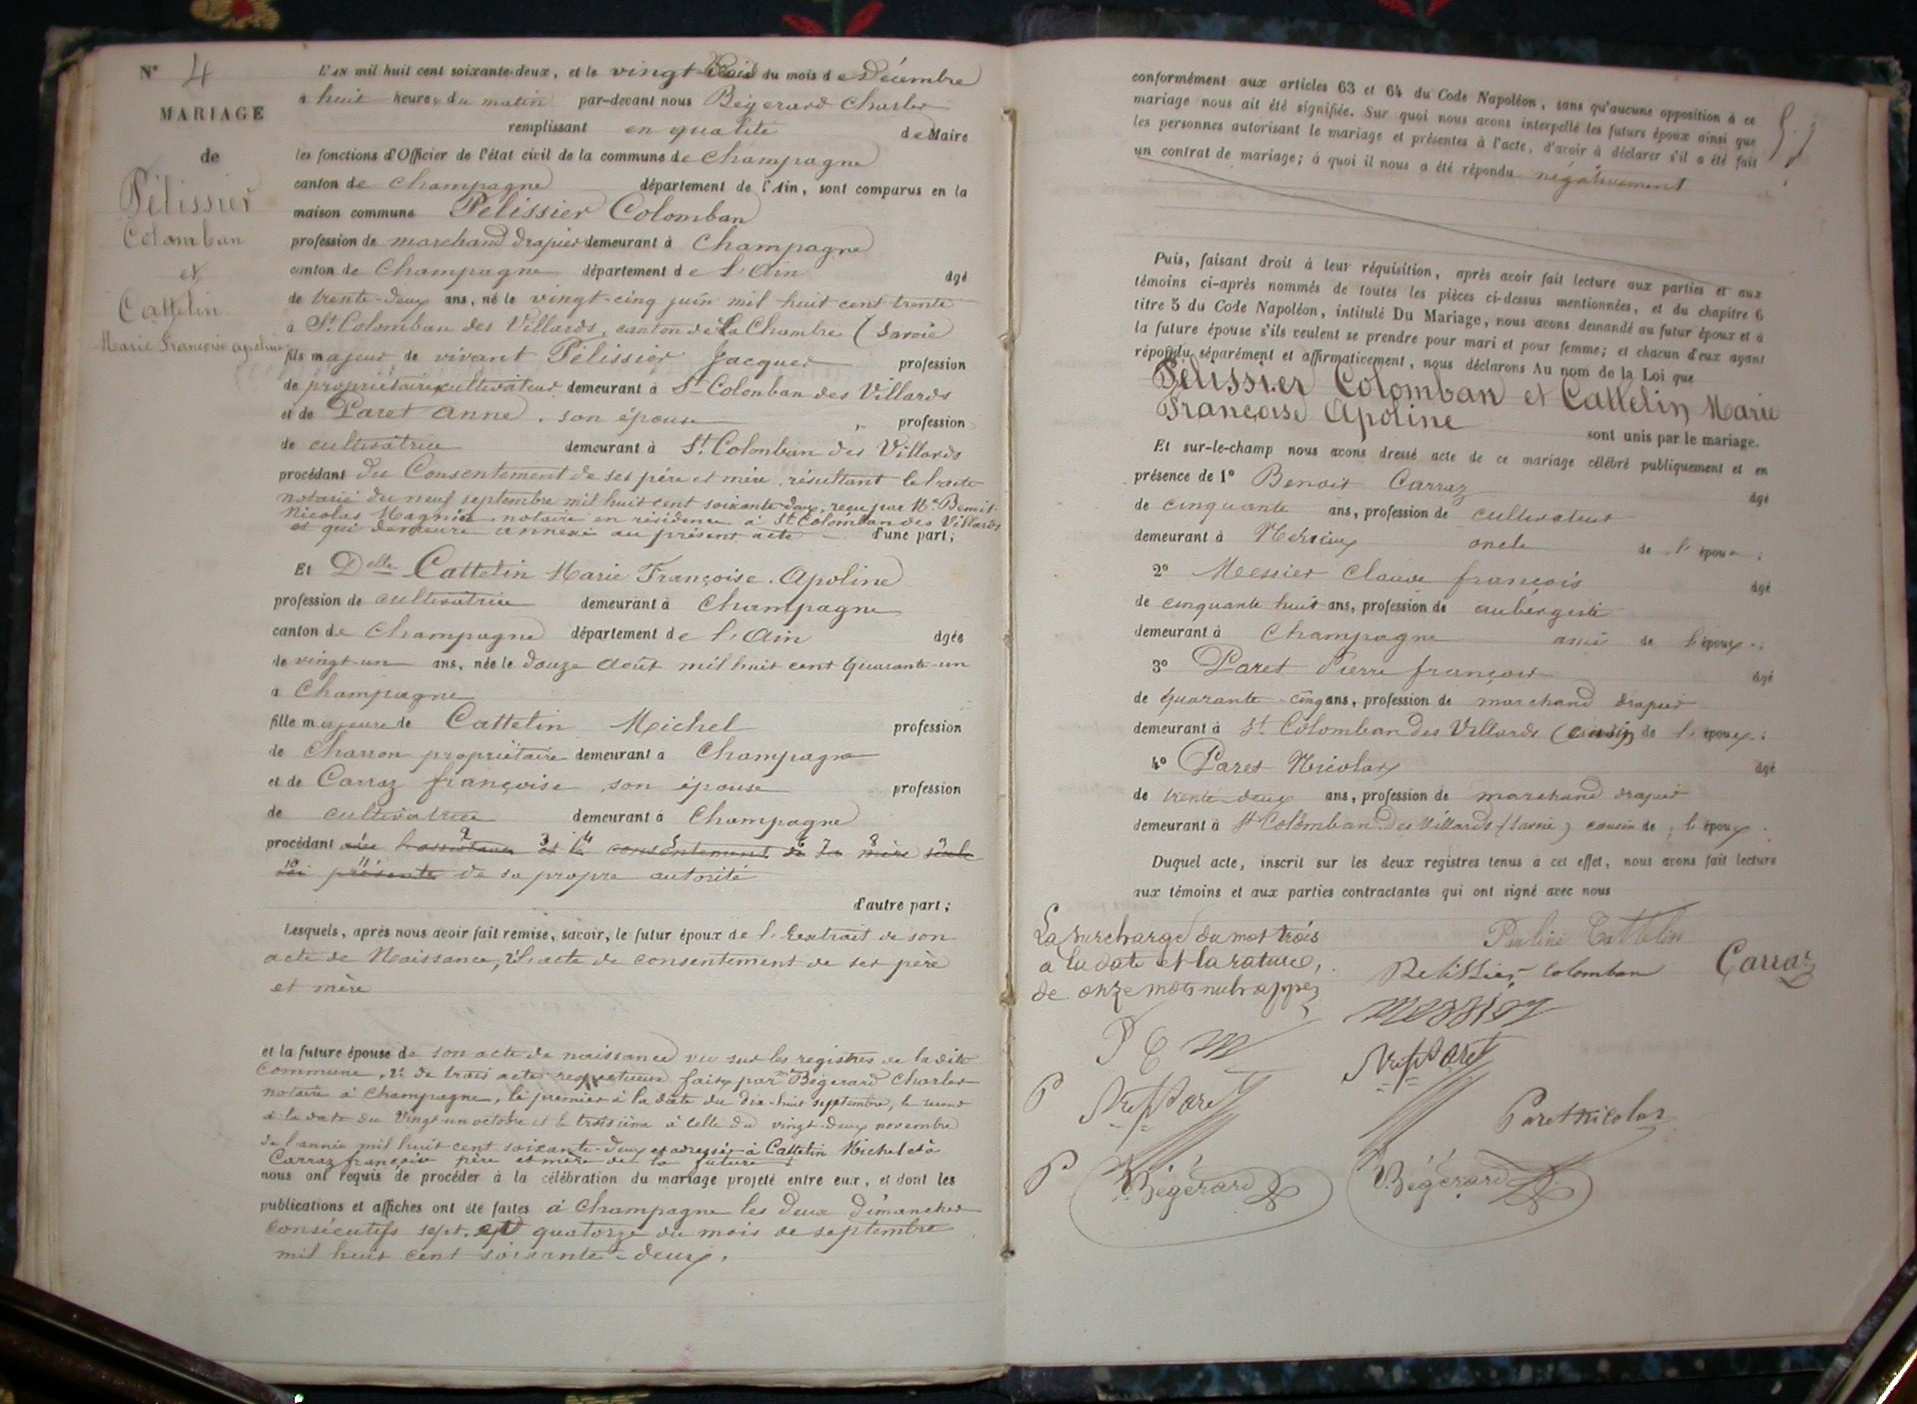 N° 4
MARIAGE
de
Pélissier
Colomban
et
Cattelin
Marie Françoise Apoline
L'AN mil huit cent soixante-deux, et le vingt trois du mois de Décembre
à huit heures du matin par-devant nous Bégerard Charles
remplissant en qualité de Maire
les fonctions d'Officier de l'état civil de la commune de Champagne
canton de Champagne département de l'Ain, sont comparus en la
maison commune Pélissier Colomban
profession de marchand drapier demeurant à Champagne
canton de Champagne département de l'Ain âgé
de trente-deux ans, né le vingt-cinq juin mil huit cent trente
à St Colomban des Villards, canton de la Chambre (Savoie
fils majeur de vivant Pélissier Jacques profession
de propriétaire cultivateur demeurant à St Colomban des Villards
et de Paret Anne, son épouse profession
de cultivatrice demeurant à St Colomban des Villards
procédant du Consentement de ses père et mère, résultant de l'acte
notarié du neuf septembre mil huit cent soixante-deux, reçu par Me Benoit
Nicolas Magnin notaire en résidence à St Colomban des Villards
et qui demeure annexé au présent acte d'une part;
Et Delle Cattelin Marie Françoise Apoline
profession de cultivatrice demeurant à Champagne
canton de Champagne département de l'Ain âgée
de vingt-un ans, née le douze Août mil huit cent quarante-un
à Champagne
fille majeure de Cattelin Michel profession
de Charron propriétaire demeurant à Champagne
et de Carraz françoise, son épouse profession
de cultivatrice demeurant à Champagne
procédant avec l'assistance et le consentement de la mère seule
ici présente de sa propre autorité
d'autre part;
Lesquels, après nous avoir fait remise, savoir, le futur époux de l'Extrait de son
acte de Naissance, 2° l'acte de consentement de ses père
et mère
et la future épouse de son acte de naissance vu sur les registres de la dite
Commune, 2° de trois actes respectueux faits par Me Bégerard Charles
notaire à Champagne, le premier à la date du dix-huit septembre, le second
à la date du vingt-un octobre et le troisième à celle du vingt-deux novembre
de l'année mil huit cent soixante-deux et adressés à Cattelin Michel et à
Carraz françoise père et mère de la future;
nous ont requis de procéder à la célébration du mariage projeté entre eux, et dont les
publications et affiches ont été faites à Champagne les deux dimanches
consécutifs sept et quatorze du mois de septembre
mil huit cent soixante-deux,
conformément aux articles 63 et 64 du Code Napoléon, sans qu'aucune opposition à ce
mariage nous ait été signifiée. Sur quoi nous avons interpellé les futurs époux ainsi que
les personnes autorisant le mariage et présentes à l'acte, d'avoir à déclarer s'il a été fait
un contrat de mariage; à quoi il nous a été répondu négativement
Puis, faisant droit à leur réquisition, après avoir fait lecture aux parties et aux
témoins ci-après nommés de toutes les pièces ci-dessus mentionnées, et du chapitre 6
titre 5 du Code Napoléon, intitulé Du Mariage, nous avons demandé au futur époux et à
la future épouse s'ils veulent se prendre pour mari et pour femme; et chacun d'eux ayant
répondu séparément et affirmativement, nous déclarons Au nom de la Loi que
Pélissier Colomban et Cattelin Marie
Françoise Apoline
sont unis par le mariage.
Et sur-le-champ nous avons dressé acte de ce mariage célébré publiquement et en
présence de 1° Benoit Carraz âgé
de cinquante ans, profession de cultivateur
demeurant à oncle de l'épouse;
2° Messier Claude françois âgé
de cinquante huit ans, profession de aubergiste
demeurant à Champagne ami de l'époux;
3° Paret Pierre françois âgé
de quarante-cinq ans, profession de marchand drapier
demeurant à St Colomban des Villards (cousin de l'époux;
4° Paret Nicolas âgé
de trente-deux ans, profession de marchand drapier
demeurant à St Colomban des Villards (Savoie) cousin de l'époux.
Duquel acte, inscrit sur les deux registres tenus à cet effet, nous avons fait lecture
aux témoins et aux parties contractantes qui ont signé avec nous
La surcharge du mot trois
à la date et la rature,
de onze mots nuls appr
Pauline Cattelin
Pelissier Colomban Carraz
P C M Messier
P Paret Paret
Paret Nicolas
P Bégérard Bégérard